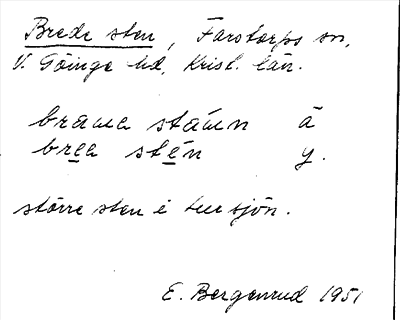 Brede sten, Farstorps sn,
V. Göinge hd, Krist. län.
bræwa stæin ä
brea sten y.
större sten i sjön.
E. Bergenrud 1951